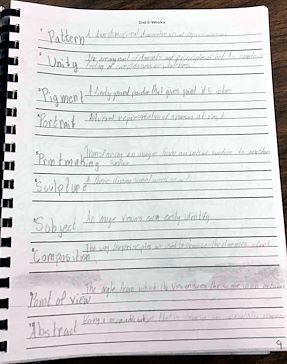 2nd 6 Weeks
Pattern A two dimensional decorative visual
Unity The arrangement of elements and principles of art to create a
feeling of completeness or wholeness
Pigment A finely ground powder that gives paint its color
Portrait representation of a person
Printmaking Transferring an image from an inked surface to another
surface
Sculpture A three dimensional work of art
Subject An image viewers can easily identify
Composition The way the principles are used to the elements of art
Point of View The angle from which the viewer sees the scene
Abstract
9